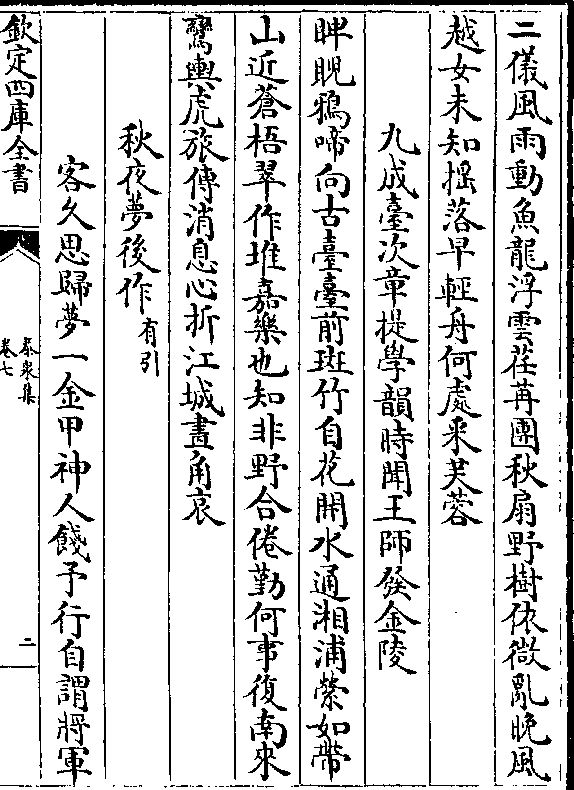 二儀風雨動魚龍浮雲荏苒團秋扇野樹依微亂晚風
越女未知揺落早輕舟何處采芙蓉
九成臺次章提學韻時聞王師發金陵
睥睨鴉啼向古臺臺前斑竹自花開水通湘浦縈如帶
山近蒼梧翠作堆嘉樂也知非野合倦勤何事復南來
鸞輿虎旅傳消息心折江城畫角哀
秋夜夢後作有引
客久思歸夢一金甲神人餞予行自謂將軍
欽定四庫全書
集
卷七
二